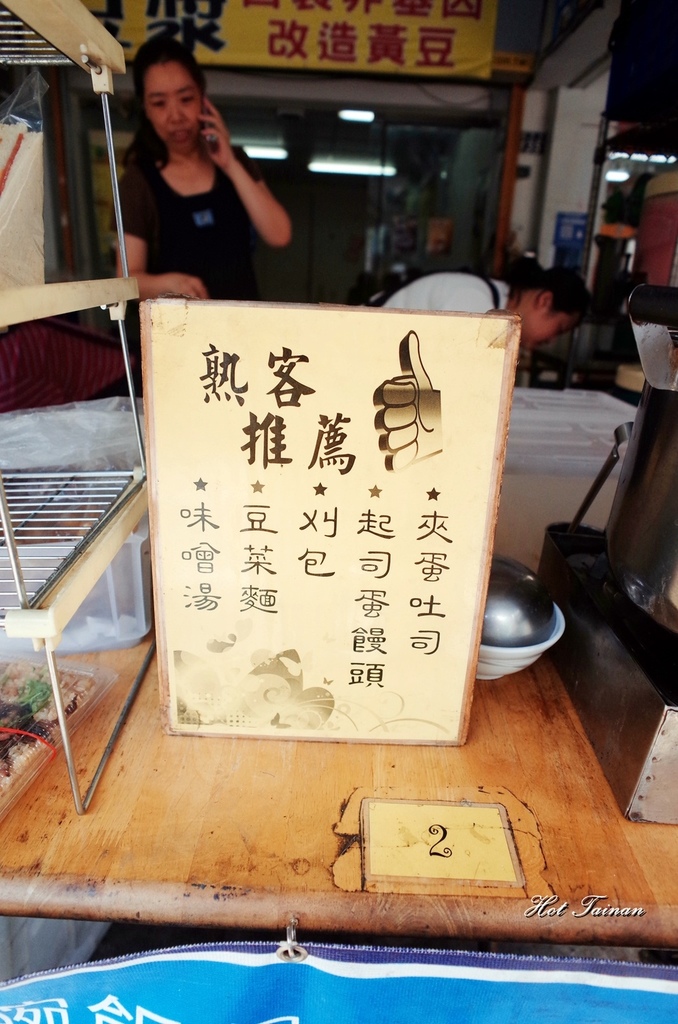 自製非基因
改造黃豆
熟客
推薦
夾蛋吐司
起司蛋饅頭
刈包
豆菜麵
味噌湯
2
Hot Tainan